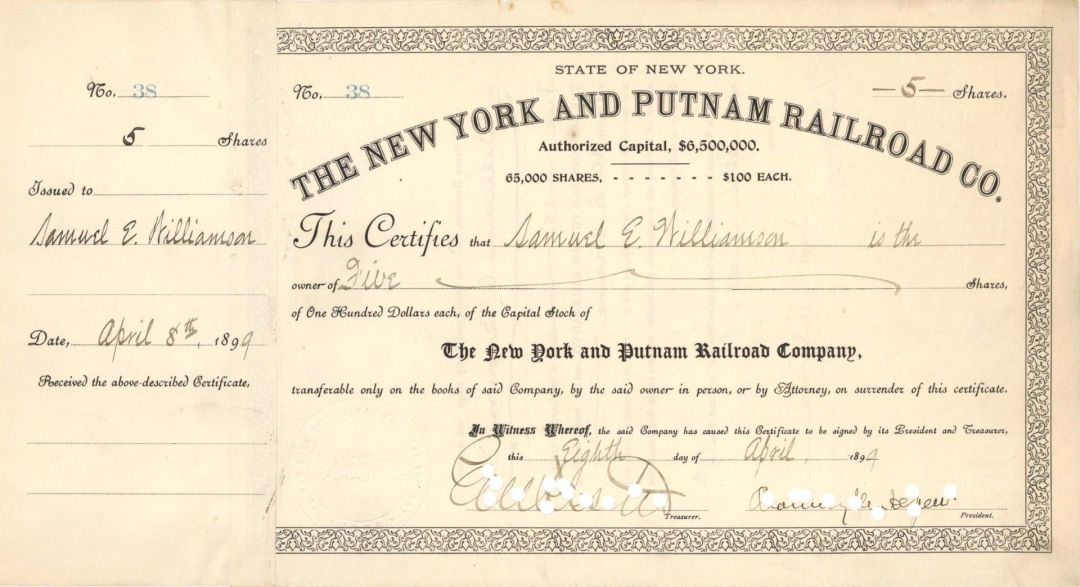 No. 38
5 Shares
Issued to
Samuel E. Williamson
Date, April 8th, 1899
Received the above-described Certificate,
STATE OF NEW YORK.
No. 38
—5— Shares.
THE NEW YORK AND PUTNAM RAILROAD CO.
Authorized Capital, $6,500,000.
65,000 SHARES, - - - - - - - $100 EACH.
This Certifies that Samuel E. Williamson is the
owner of Five Shares,
of One Hundred Dollars each, of the Capital Stock of
The New York and Putnam Railroad Company,
transferable only on the books of said Company, by the said owner in person, or by Attorney, on surrender of this certificate.
In Witness Whereof, the said Company has caused this Certificate to be signed by its President and Treasurer,
this Eighth day of April, 1899
Chauncey M. Depew
Treasurer.
President.